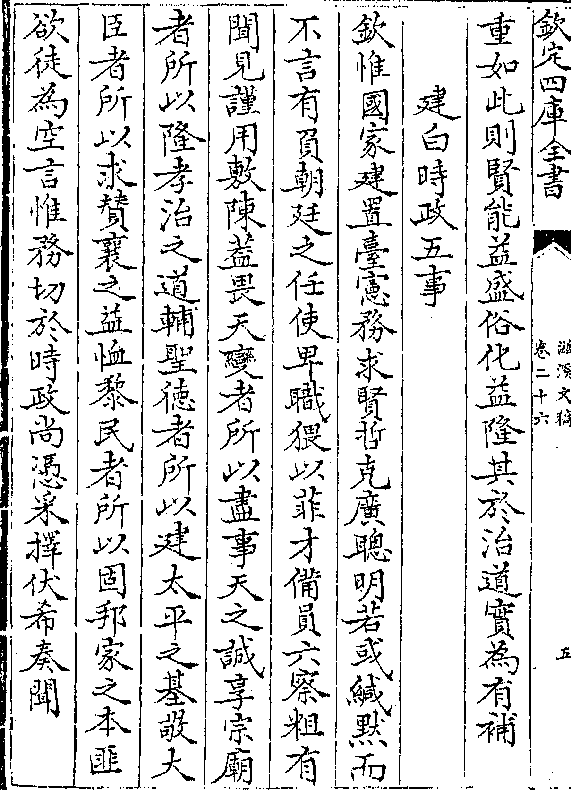 欽定四庫全書
滋溪文稿
卷二十六
五
重如此則賢能益盛俗化益隆其於治道實為有補
建白時政五事
欽惟國家建置臺憲務求賢哲克廣聰明若或緘黙而
不言有負朝廷之任使卑職猥以菲才備員六察粗有
聞見謹用敷陳葢畏天變者所以盡事天之誠享宗廟
者所以隆孝治之道輔聖徳者所以建太平之基敬大
臣者所以求賛襄之益恤黎民者所以固邦家之本匪
欲徒為空言惟務切於時政尚憑采擇伏希奏聞